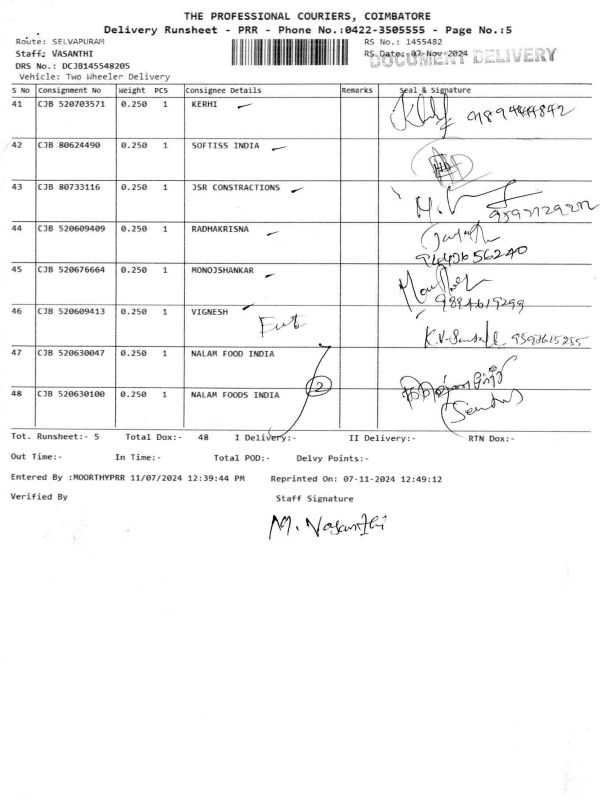 THE PROFESSIONAL COURIERS, COIMBATORE
Delivery Runsheet - PRR - Phone No.:0422-3505555 - Page No.:5
Route: SELVAPURAM RS No.: 1455482
Staff: VASANTHI RS Date: 07-Nov-2024
DOCUMENT DELIVERY
DRS No.: DCJB145548205
Vehicle: Two Wheeler Delivery
S No Consignment No Weight PCS Consignee Details Remarks Seal & Signature
41 CJB 520703571 0.250 1 KERHI
42 CJB 80624490 0.250 1 SOFTISS INDIA
43 CJB 80733116 0.250 1 JSR CONSTRACTIONS
44 CJB 520609409 0.250 1 RADHAKRISNA
9442656240
45 CJB 520676664 0.250 1 MONOJSHANKAR
9884619299
46 CJB 520609413 0.250 1 VIGNESH
47 CJB 520630047 0.250 1 NALAM FOOD INDIA
2
48 CJB 520630100 0.250 1 NALAM FOODS INDIA
Tot. Runsheet:- 5 Total Dox:- 48 I Delivery:- II Delivery:- RTN Dox:-
Out Time:- In Time:- Total POD:- Delvy Points:-
Entered By :MOORTHYPRR 11/07/2024 12:39:44 PM Reprinted On: 07-11-2024 12:49:12
Verified By Staff Signature
M. Vasanthi